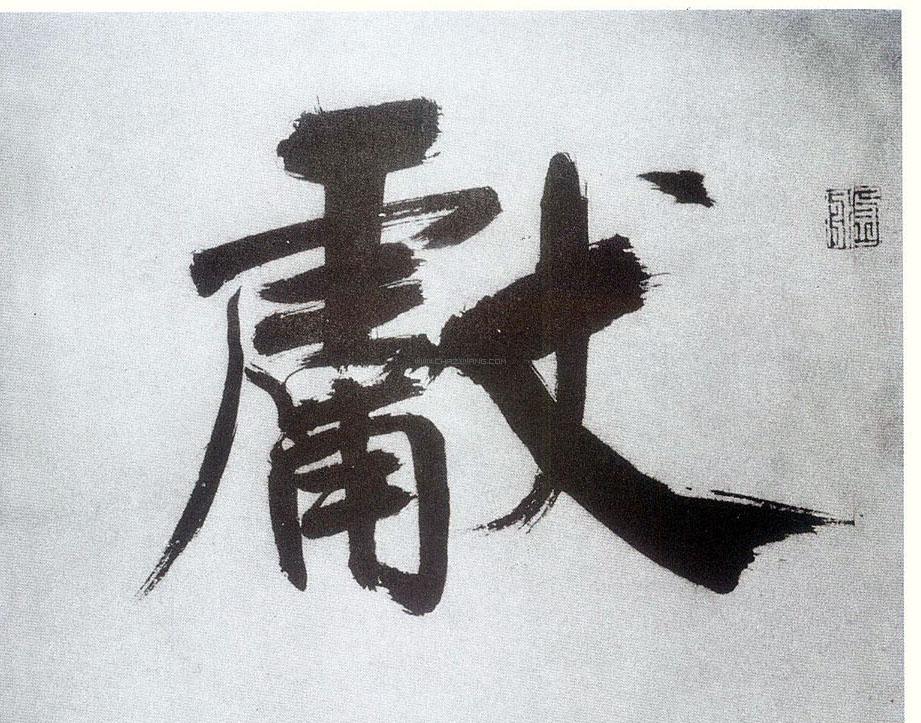 獻
WWW.CHAZIWANG.COM